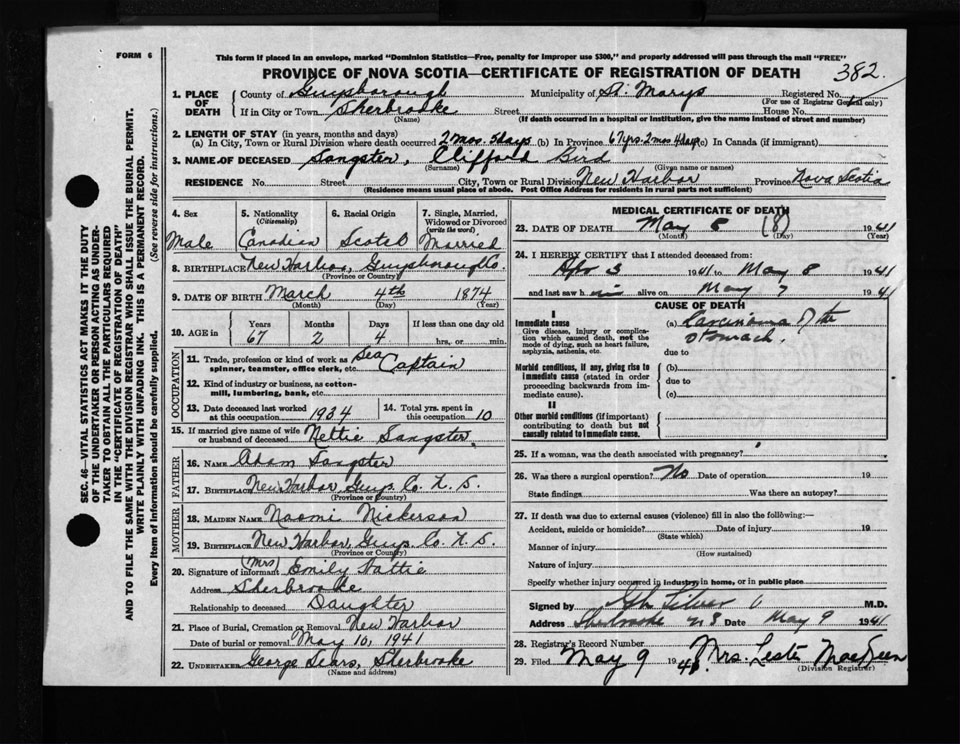 FORM 6
This form if placed in an envelope, marked "Dominion Statistics—Free, penalty for improper use $300," and properly addressed will pass through the mail "FREE"
PROVINCE OF NOVA SCOTIA—CERTIFICATE OF REGISTRATION OF DEATH
382.
1. PLACE OF DEATH County of Guysborough Municipality of St. Marys Registered No.
(For use of Registrar General only)
If in City or Town Sherbrooke Street House No.
(Name) (If death occurred in a hospital or institution, give the name instead of street and number)
2. LENGTH OF STAY (in years, months and days)
(a) In City, Town or Rural Division where death occurred 2 mos. 5 days (b) In Province 67 yrs. 2 mos 4 days (c) In Canada (if immigrant)
3. NAME OF DECEASED Sangster, Clifford Bird
(Surname) (Given name or names)
RESIDENCE No. Street City, Town or Rural Division New Harbor Province Nova Scotia
(Residence means usual place of abode. Post Office Address for residents in rural parts not sufficient)
4. Sex Male
5. Nationality (Citizenship) Canadian
6. Racial Origin Scotch
7. Single, Married, Widowed or Divorced (write the word) Married
8. BIRTHPLACE New Harbor, Guysborough Co.
(Province or Country)
9. DATE OF BIRTH March 4th 1874
(Month) (Day) (Year)
10. AGE in Years Months Days If less than one day old
67 2 4 hrs. or min.
OCCUPATION
11. Trade, profession or kind of work as spinner, teamster, office clerk, etc. Sea Captain
12. Kind of industry or business, as cotton-mill, lumbering, bank, etc.
13. Date deceased last worked at this occupation 1934
14. Total yrs. spent in this occupation 10
15. If married give name of wife or husband of deceased Nettie Sangster
FATHER
16. NAME Adam Sangster
17. BIRTHPLACE New Harbor Guys. Co. N. S.
(Province or Country)
MOTHER
18. MAIDEN NAME Naomi Nickerson
19. BIRTHPLACE New Harbor, Guys. Co. N. S.
(Province or Country)
20. Signature of informant (Mrs) Emily Hattie
Address Sherbrooke
Relationship to deceased Daughter
21. Place of Burial, Cremation or Removal New Harbor
Date of burial or removal May 10, 1941
22. UNDERTAKER George Sears, Sherbrooke
(Name and address)
MEDICAL CERTIFICATE OF DEATH
23. DATE OF DEATH May 8 (8) 1941
(Month) (Day) (Year)
24. I HEREBY CERTIFY that I attended deceased from:
Apr 3 1941 to May 8 1941
and last saw him alive on May 7 1941
CAUSE OF DEATH
I
Immediate cause
Give disease, injury or complication which caused death, not the mode of dying, such as heart failure, asphyxia, asthenia, etc.
(a) Carcinoma of the stomach.
due to
Morbid conditions, if any, giving rise to immediate cause (stated in order proceeding backwards from immediate cause).
(b)
due to
(c)
II
Other morbid conditions (if important) contributing to death but not causally related to immediate cause.
25. If a woman, was the death associated with pregnancy?
26. Was there a surgical operation? No Date of operation 19
State findings Was there an autopsy?
27. If death was due to external causes (violence) fill in also the following:—
Accident, suicide or homicide? Date of injury 19
(State which)
Manner of injury
(How sustained)
Nature of injury
Specify whether injury occurred in industry, in home, or in public place
Signed by M.D.
Address Sherbrooke N S Date May 9 1941
28. Registrar's Record Number
29. Filed May 9 1941 Mrs. Leslie
(Division Registrar)
SEC. 46—VITAL STATISTICS ACT MAKES IT THE DUTY
OF THE UNDERTAKER OR PERSON ACTING AS UNDER-
TAKER TO OBTAIN ALL THE PARTICULARS REQUIRED
IN THE "CERTIFICATE OF REGISTRATION OF DEATH"
AND TO FILE THE SAME WITH THE DIVISION REGISTRAR WHO SHALL ISSUE THE BURIAL PERMIT.
WRITE PLAINLY WITH UNFADING INK. THIS IS A PERMANENT RECORD.
Every item of information should be carefully supplied. (See reverse side for instructions.)